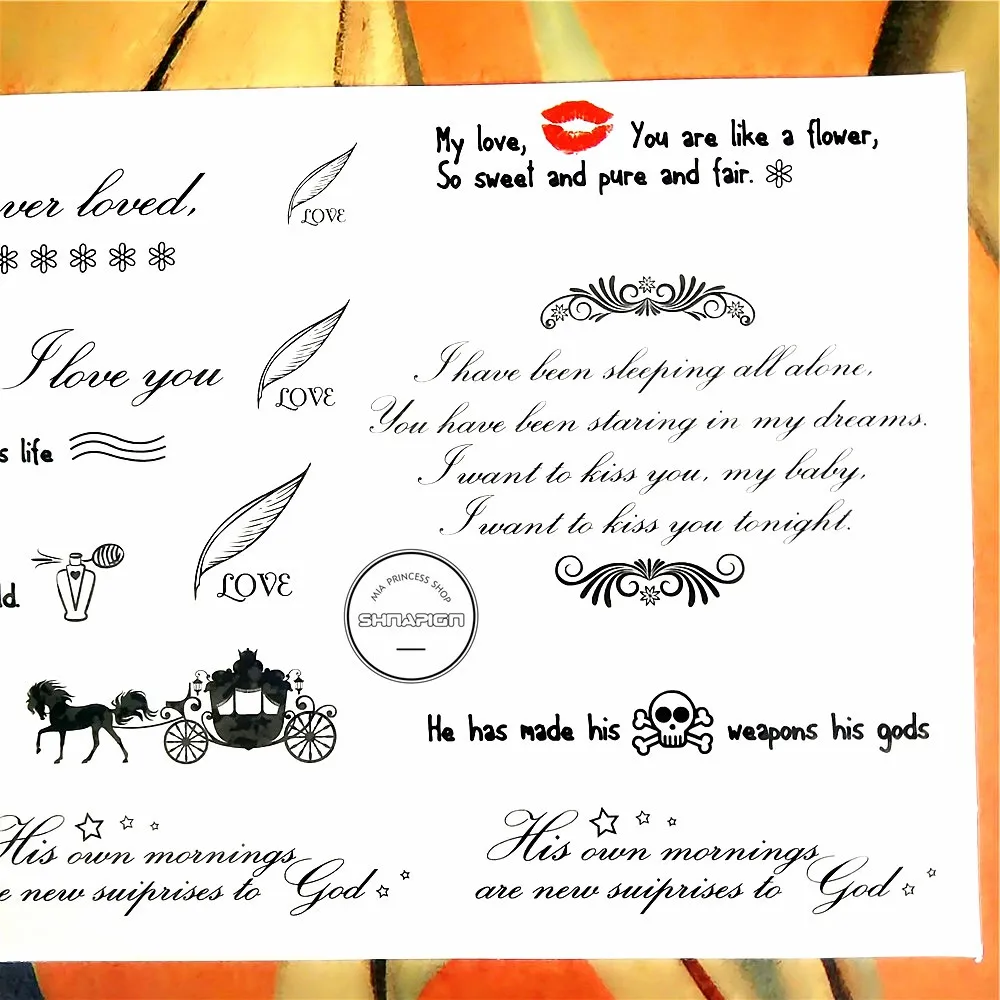 My love, You are like a flower,
So sweet and pure and fair.
ver loved,
LOVE
I love you
LOVE
s life
LOVE
I have been sleeping all alone,
You have been staring in my dreams.
I want to kiss you, my baby,
I want to kiss you tonight.
MIA PRINCESS SHOP
SHNAPIGN
He has made his weapons his gods
His own mornings
e new suiprises to God
His own mornings
are new suiprises to God